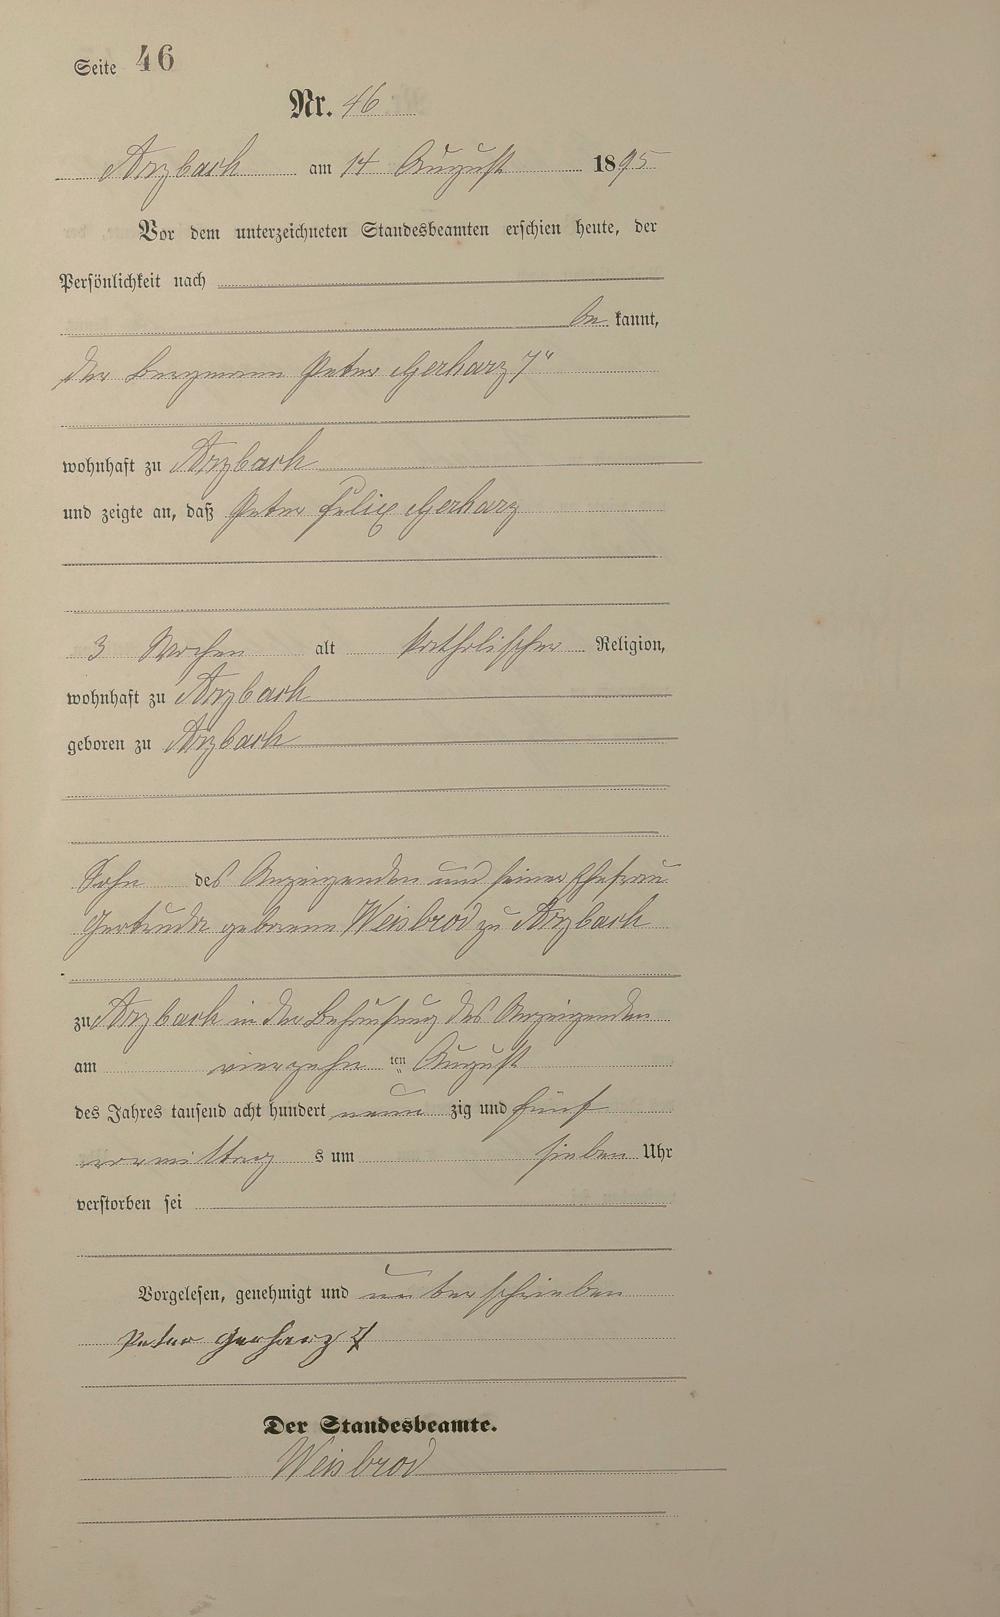 Seite 46
Nr. 46
Arzbach am 14 August 1895
Vor dem unterzeichneten Standesbeamten erschien heute, der
Persönlichkeit nach
be kannt,
der Bergmann Peter Gerharz 7"
wohnhaft zu Arzbach
und zeigte an, daß Peter Felix Gerharz
3 Wochen alt katholischer Religion,
wohnhaft zu Arzbach
geboren zu Arzbach
Sohn des Anzeigenden und seiner Ehefrau
Gertrude geborene Weisbrod zu Arzbach
zu Arzbach in der Behausung des Anzeigenden
am vierzehn ten August
des Jahres tausend acht hundert neun zig und fünf
vormittag s um sieben Uhr
verstorben sei
Vorgelesen, genehmigt und unterschrieben
Peter Gerharz 7
Der Standesbeamte.
Weisbrod